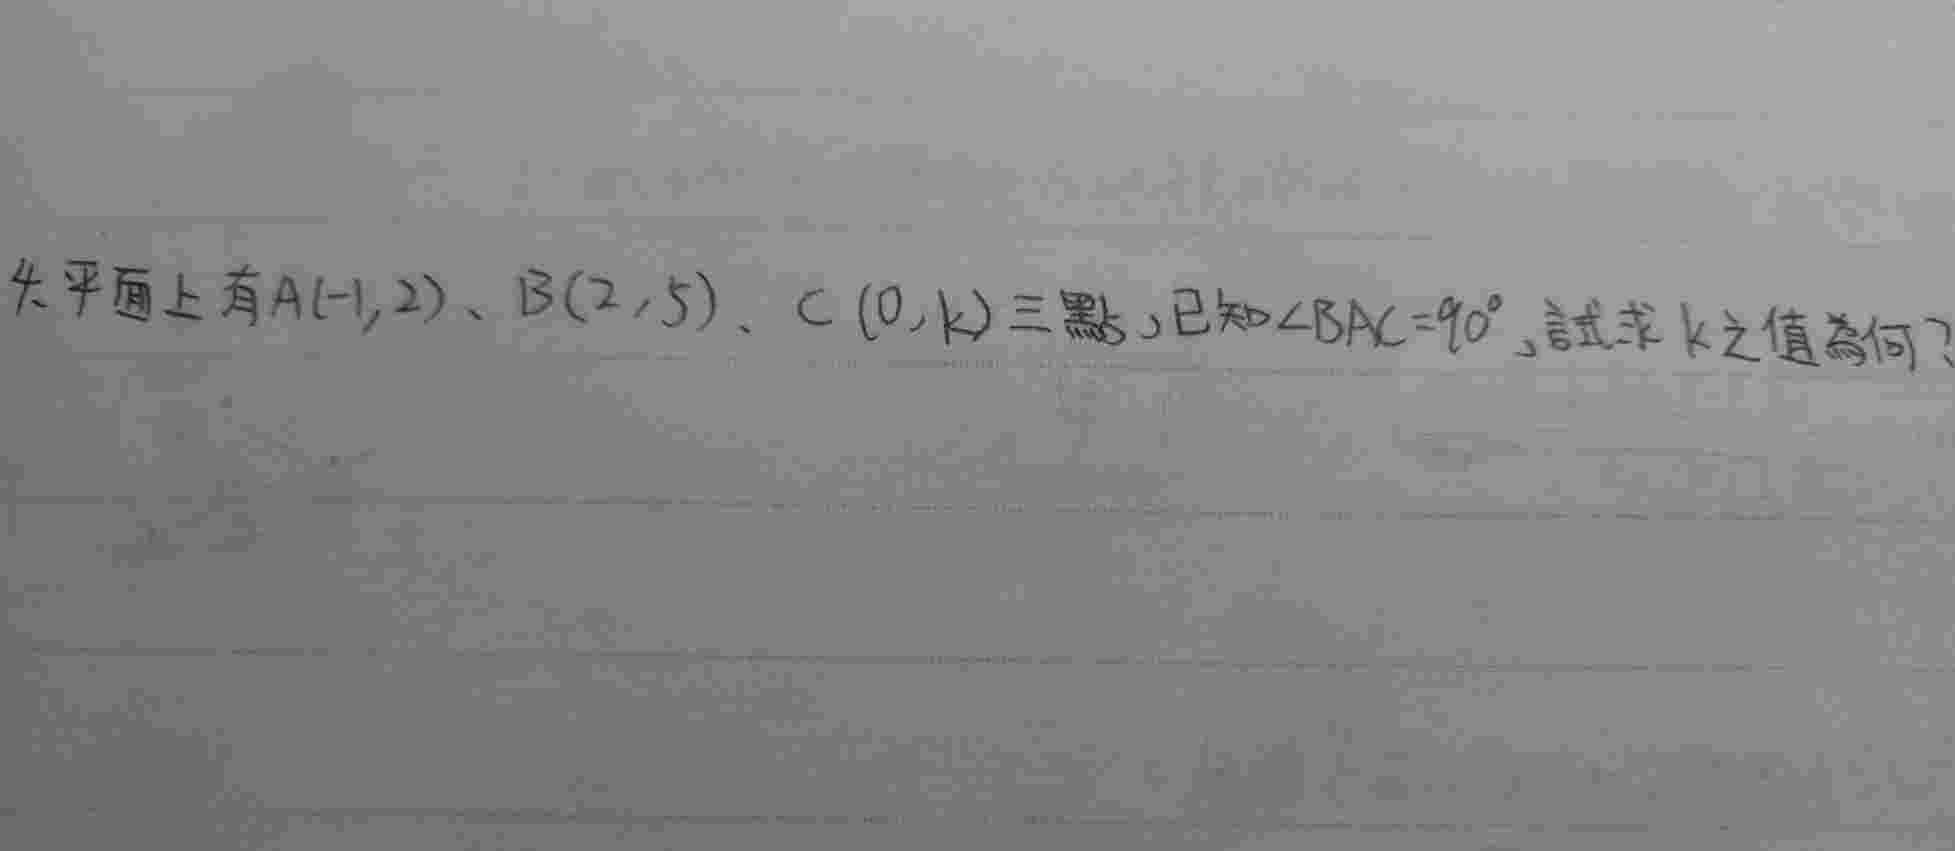 4、平面上有A(-1,2)、B(2,5)、C(0,k)三點,已知∠BAC=90°,試求k之值為何?